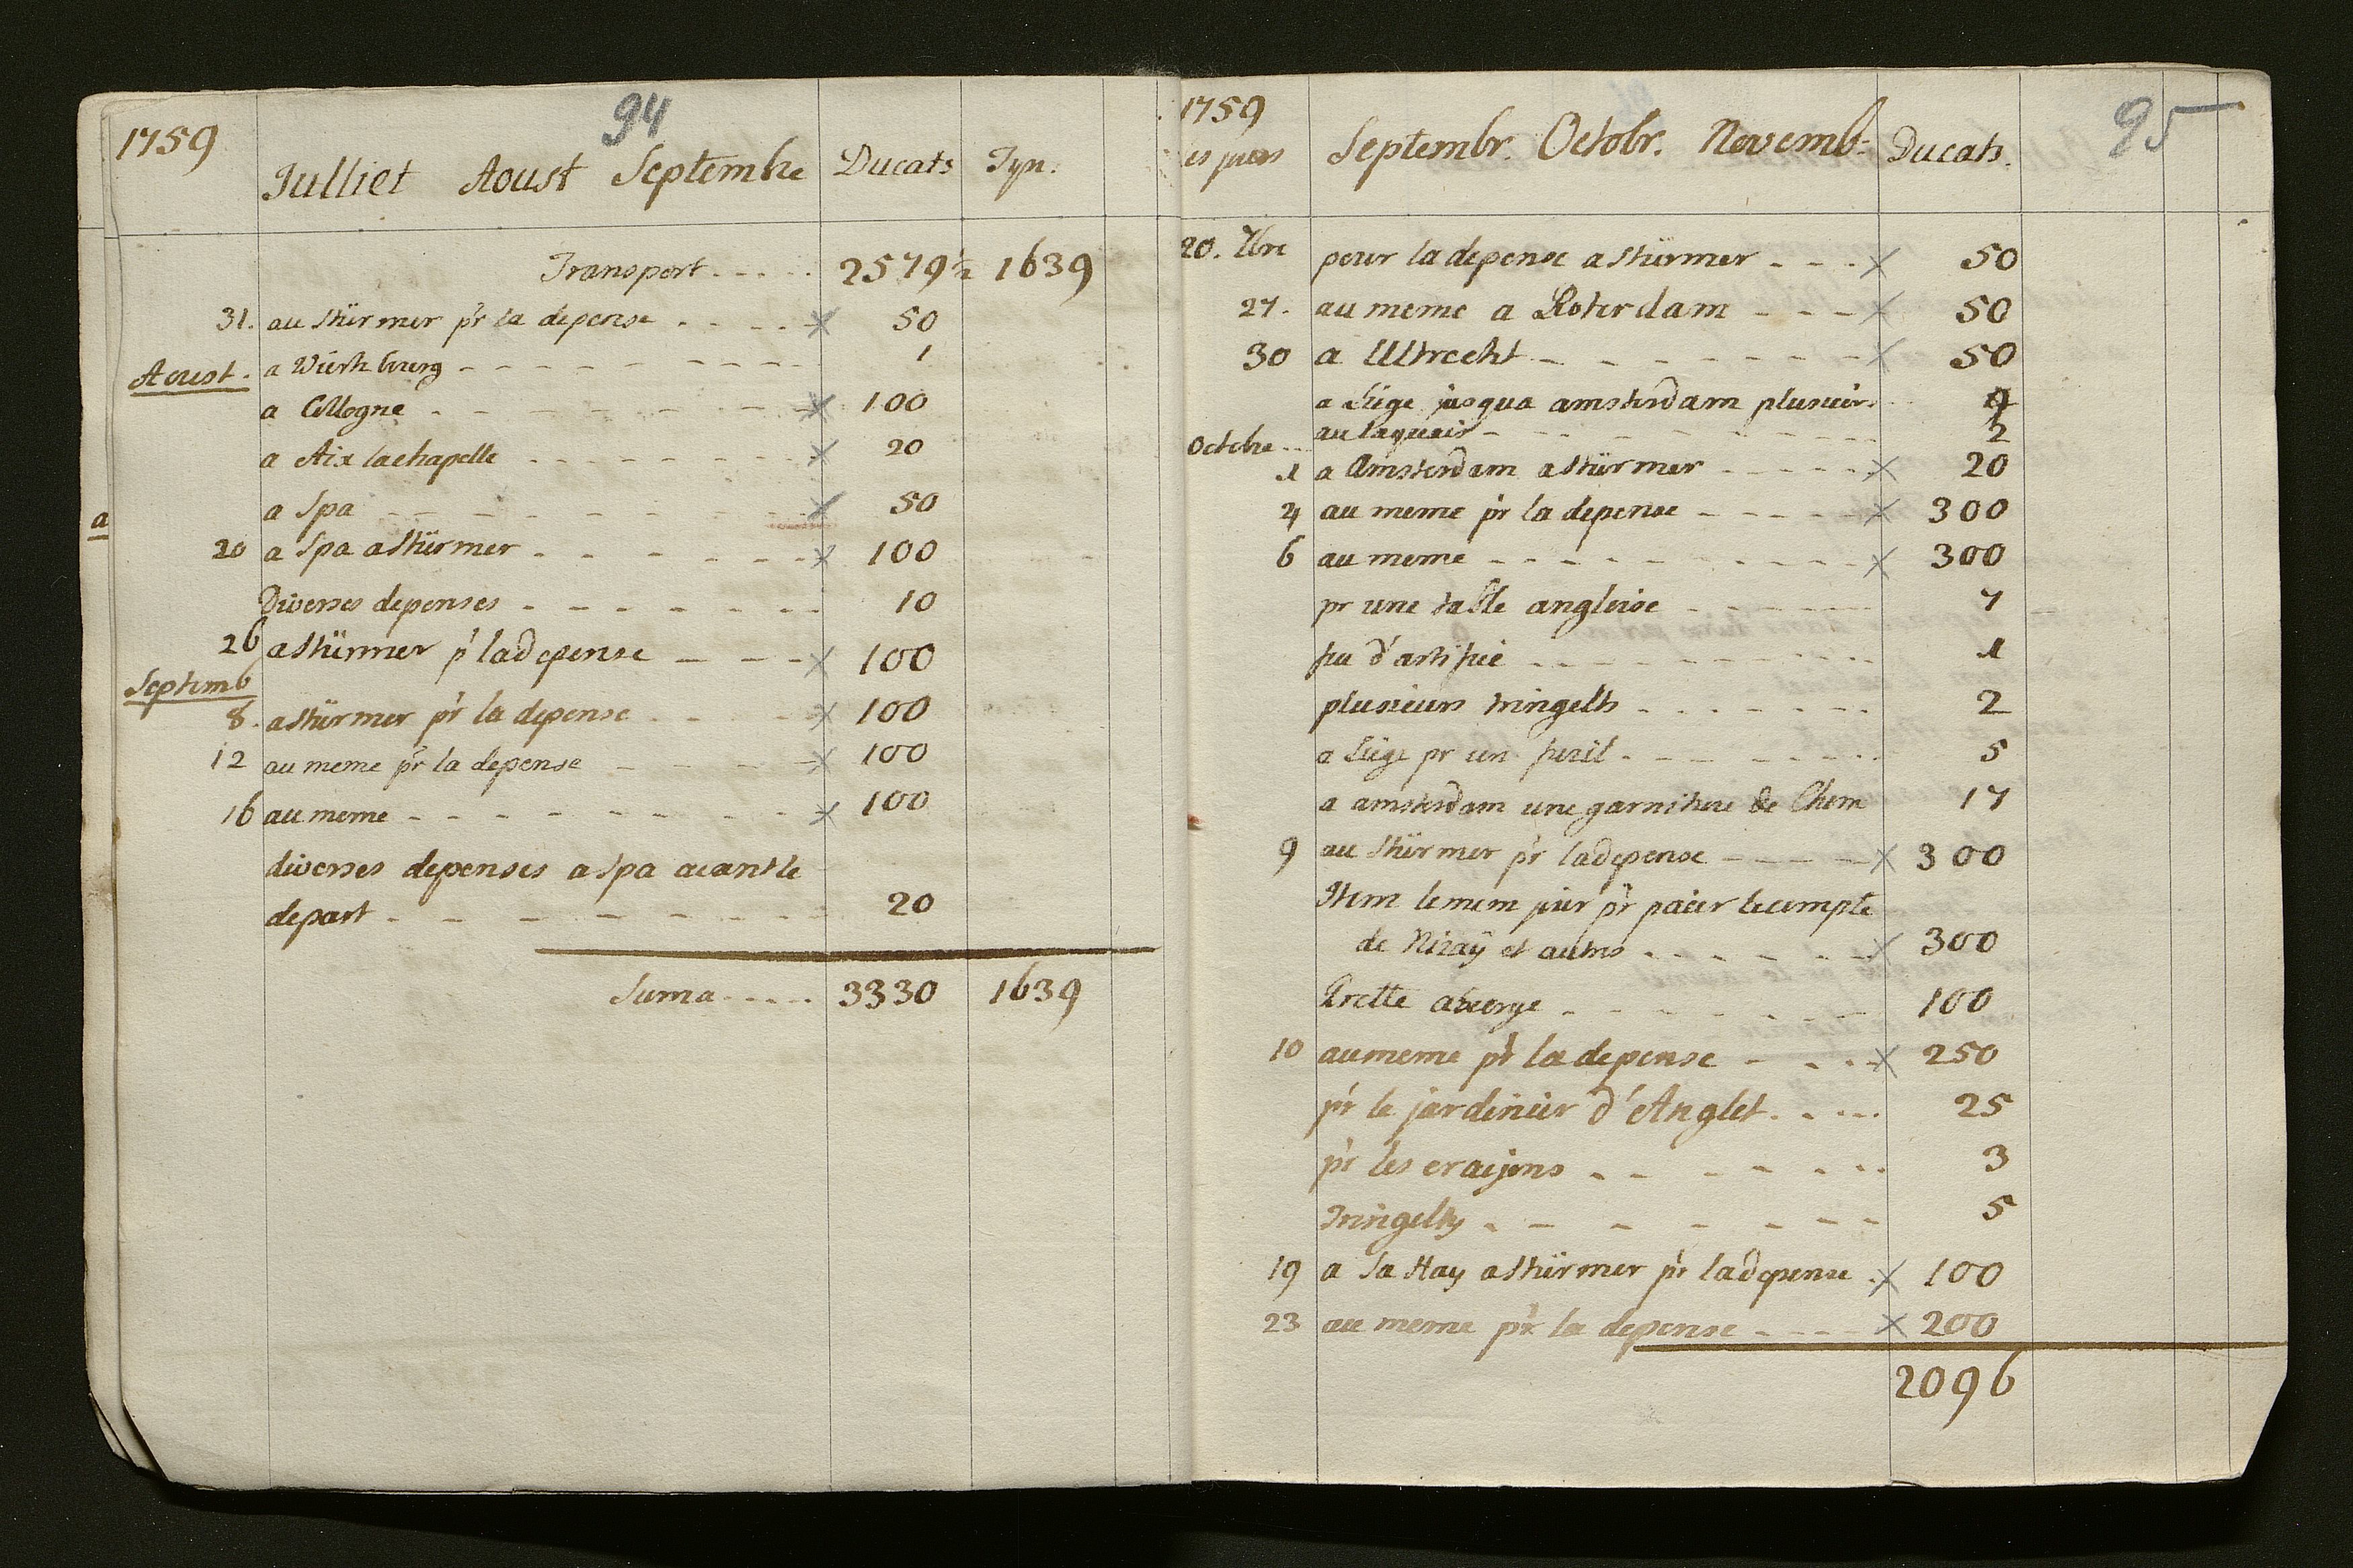 94
1759
Julliet Aoust Septembre Ducats Tyn.
Transport..... 2579½ 1639
31. au Stürmer pr la depense .... x 50
Aoust. a Würtzburg - - - - 1
a Collogne - - - - x 100
a Aix lachapelle - - - - x 20
a Spa - - - - x 50
a
20 a Spa a Stürmer - - - - x 100
Diverses depenses - - - - 10
26 a Stürmer pr ladepense - - - x 100
Septemb
8. a Stürmer pr la depense - - - x 100
12 au meme pr la depense - - - x 100
16 au meme - - - - x 100
diverses depenses a Spa avant le
depart - - - - 20
Suma ..... 3330 1639
95
1759
Septembr. Octobr. Novemb: Ducats.
20. 7bre pour ladepense a Stürmer - - - x 50
27. au meme a Roterdam - - - x 50
30 a Uttrecht - - - - x 50
a Liege jusqua amsterdam plusieur.
au laquais - - - - 2
Octobre ..
1 a Amsterdam a Stürmer - - - x 20
4 au meme pr la depense - - - x 300
6 au meme - - - - x 300
pr une table angloise - - - 7
feu d'artifice - - - - 1
plusieurs tringelts - - - - 2
a Liege pr un fusil - - - - 5
a amsterdam une garniture de Chem 17
9 au Stürmer pr ladepense - - - x 300
Item le mem jour pr paier lecompte
de Nizaÿ et autres - - - - x 300
100
10 aumeme pr la depense - - - x 250
pr le jardinier d'Anglet. - - - 25
pr les craijons - - - - 3
Tringelts - - - - 5
19 a La Hay a Stürmer pr ladepense . x 100
23 au meme pr la depense - - - x 200
2096